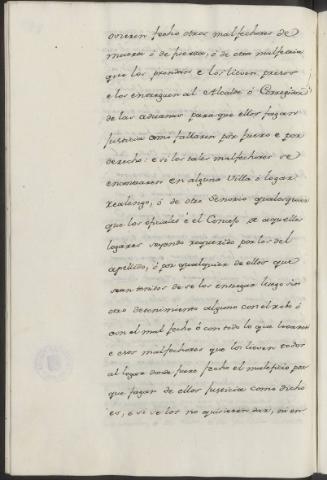 ovieren fecho otros malfechores de
muerte ó de fuerza, ó de otra malfetria
que los prendan e los lieven presos
e los entreguen al Alcalde ó Corregidor
de las aduanas para que ellos fagan
justicia como fallaren por fuero e por
derecho: e si los tales malfechores se
encerraren en alguna Villa ó logar
realengo, ó de otro Señorio qualesquier
que los oficiales é el Concejo de aquellos
logares seyendo requerido por los del
apellido, ó por qualquier de ellos que
sean tenidos de se los entregar luego sin
otro detenimiento alguno con el robo ó
con el mal fecho ó con todo lo que levaren
e esos malfechores que los lieven todos
al logar donde fuere fecho el maleficio por
que fagan de ellos justicia como dicho
es, e si se los non quisieren dar, ni en